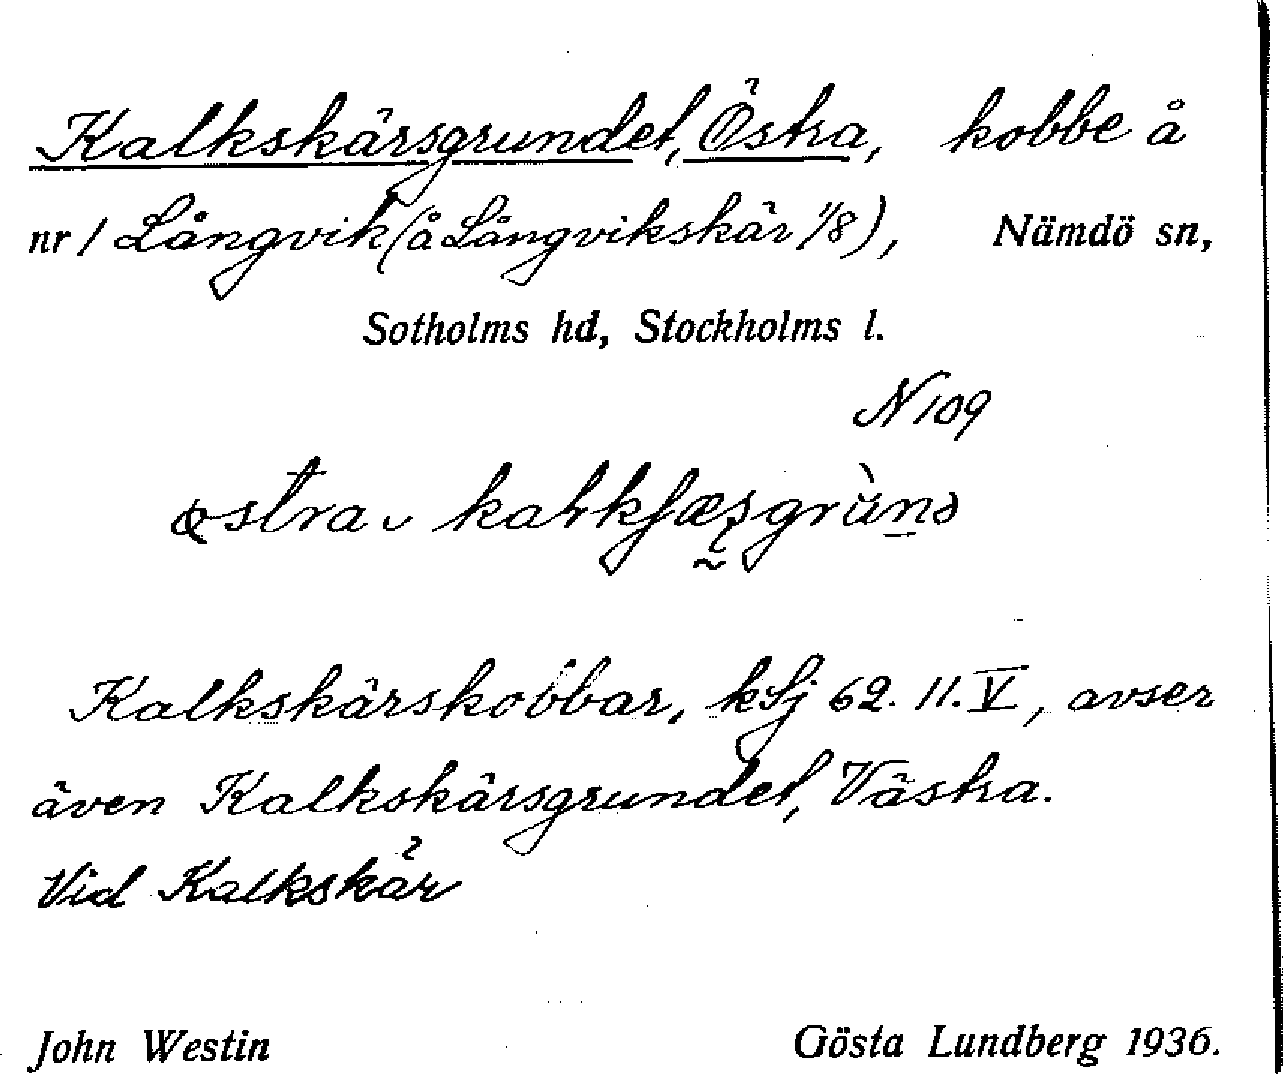 Kalkskärsgrundet, Östra, kobbe å
nr 1 Långvik (å Långvikskär 1/8), Nämdö sn,
Sotholms hd, Stockholms l.
N 109
Kalkskärskobbar, kSj 62. 11. V, avser
även Kalkskärsgrundet, Västra.
Vid Kalkskär
John Westin Gösta Lundberg 1936.